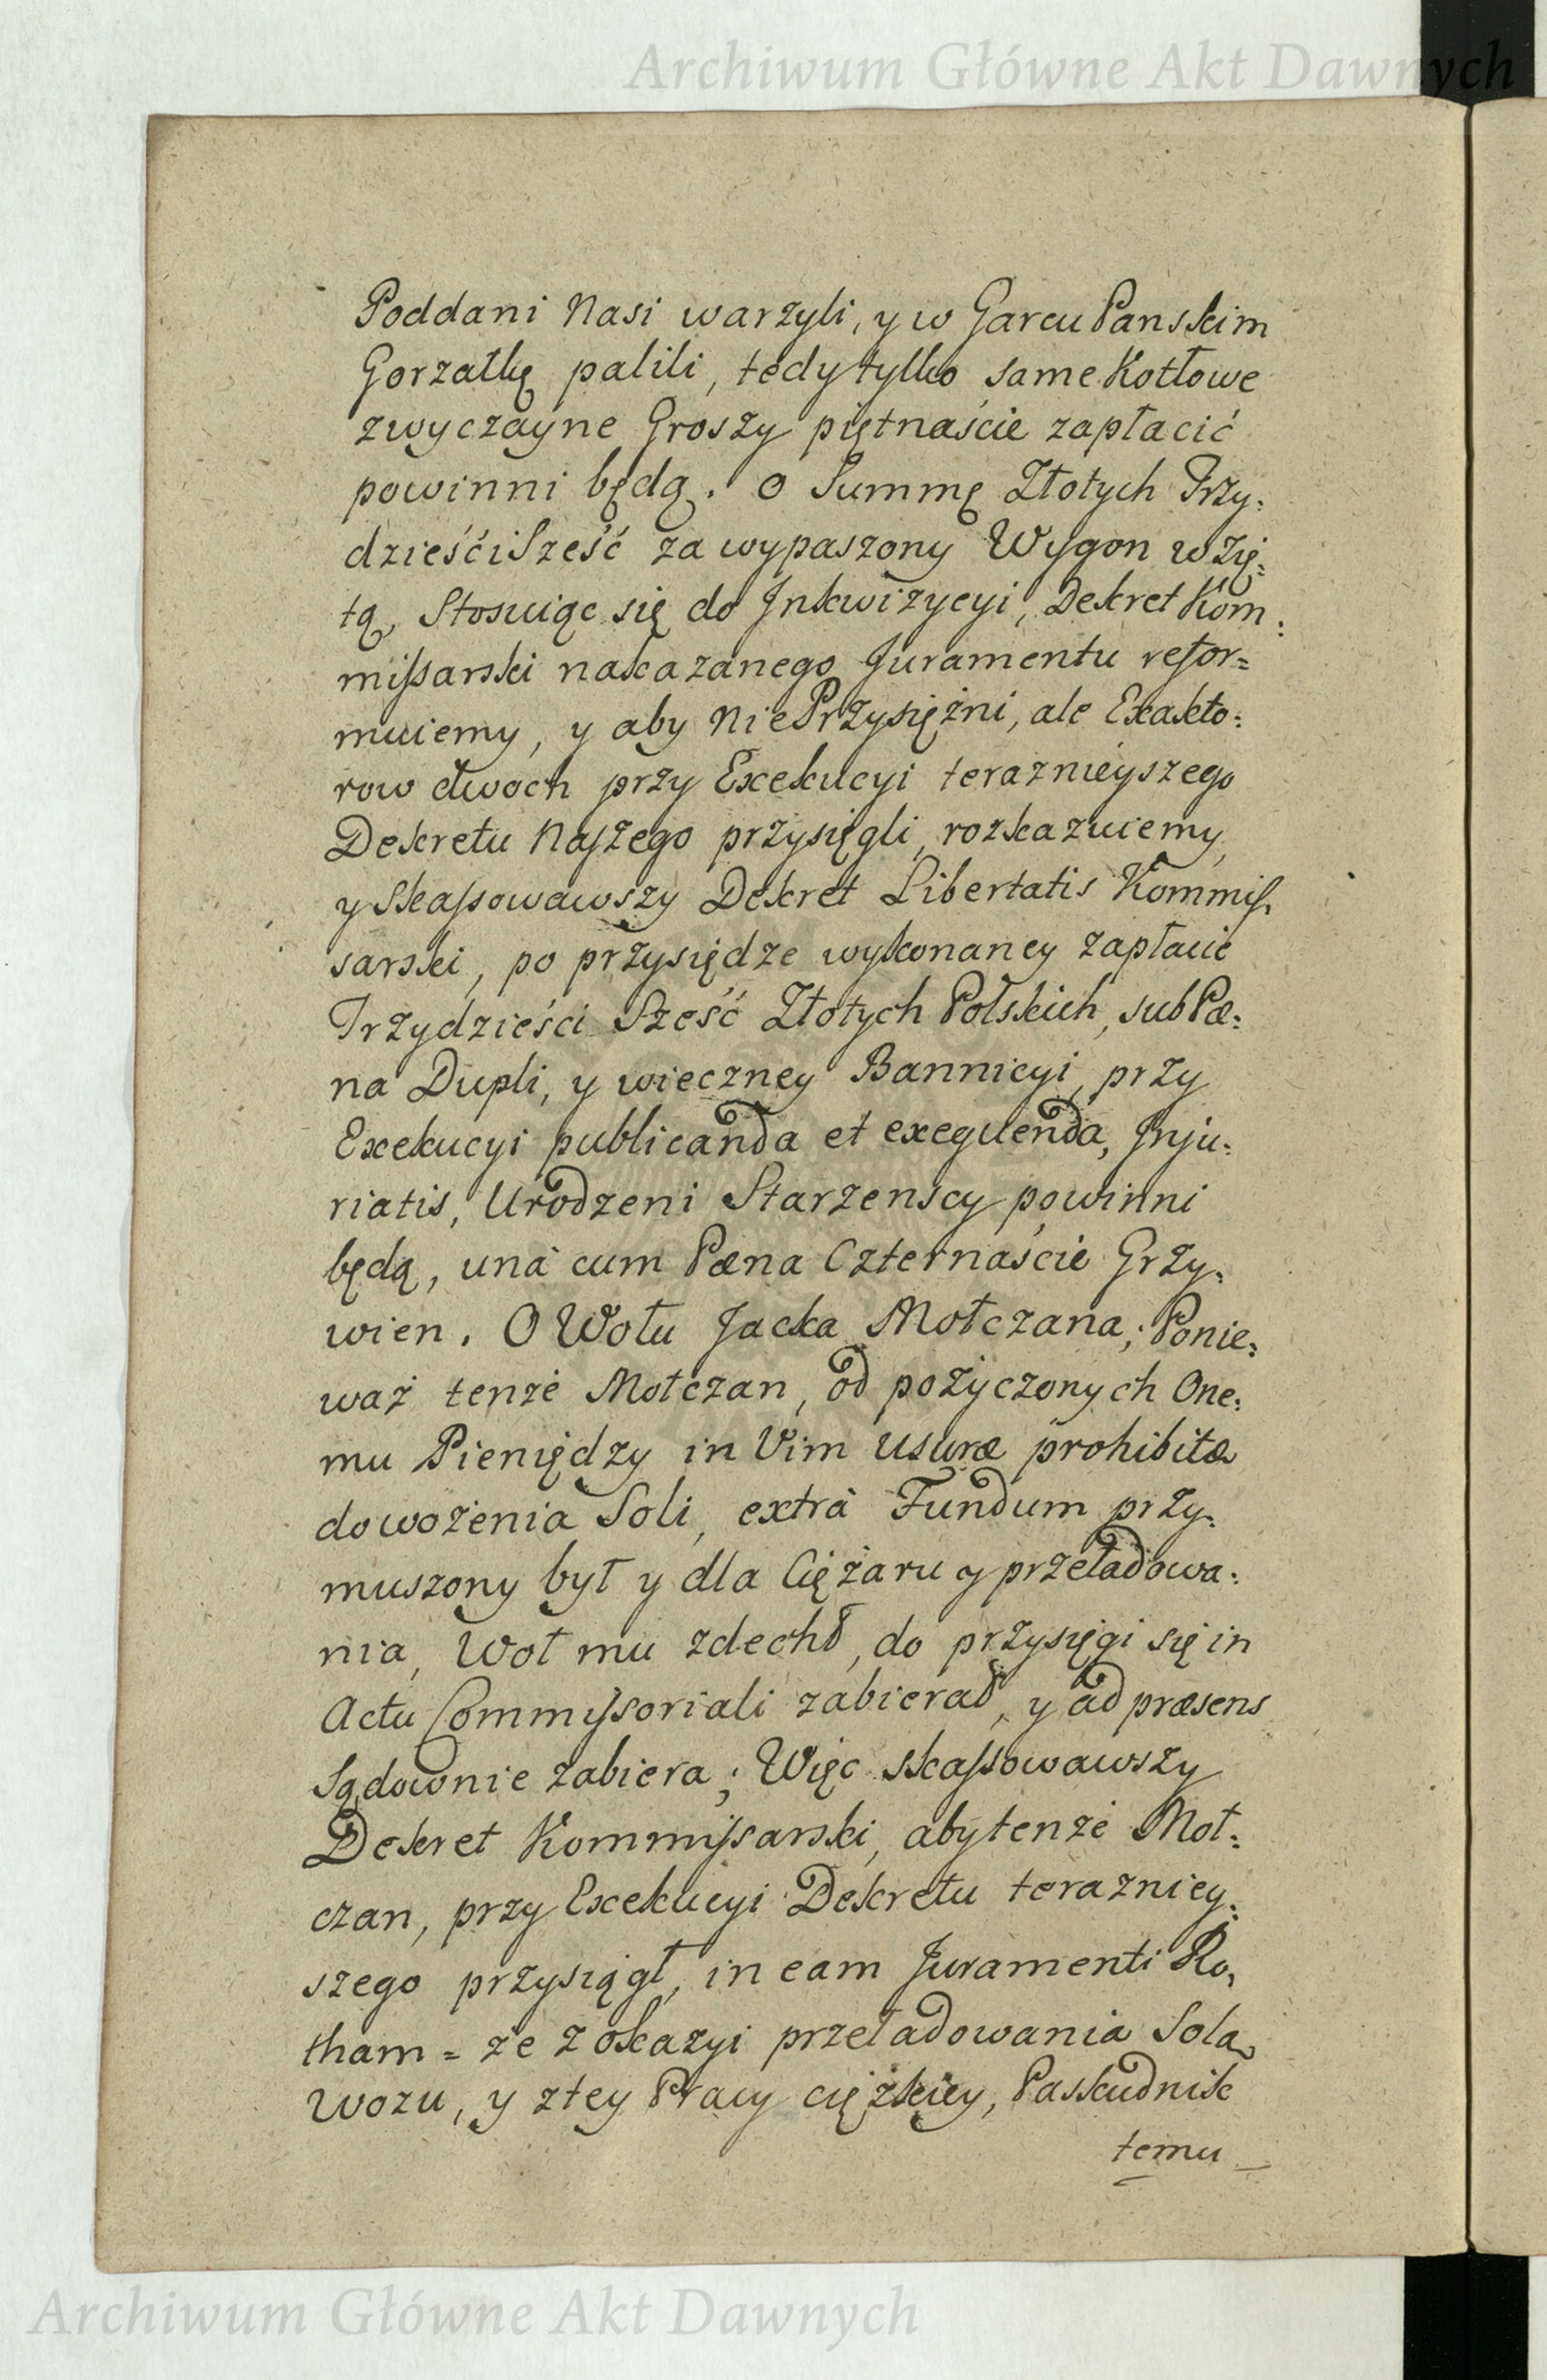 Archiwum Główne Akt Dawnych
Poddani Nasi warzyli, y w Garcu Panskim
Gorzałkę palili, tedy tylko same Kotłowe
zwyczayne Groszy piętnaście zapłacić
powinni będą. O Summę Złotych Trzy:
dzieśćiSześć za wypaszony Wygon wzię:
tą, Stosuiąc się do Inkwizycyi, Dekret Kom:
missarski nakazanego Juramentu refor=
muiemy, y aby niePrzysiężni, ale Exakto:
row dwoch przy Exekucyi teraznieyszego
Dekretu Naszego przysięgli, rozkazuiemy,
y Skassowawszy Dekret Libertatis Kommis:
sarski, po przysiędze wykonaney zapłacić
Trzydzieści Sześć Złotych Polskich, sub Pæ:
na Dupli, y wieczney Bannicyi, przy
Exekucyi publicanda et exequenda, Inju:
riatis, Urodzeni Starzenscy powinni
będą, una cum Pæna Czternaście Grzy:
wien. O Wołu Jacka Mołczana; Ponie:
waż tenże Mołczan, od pożyczonych One:
mu Pieniędzy in Vim usuræ prohibitæ
dowożenia Soli, extrà Fundum przy:
muszony był y dla Ciężaru y przeładowa:
nia, Woł mu zdechł, do przysięgi się in
Actu Commissoriali zabierał, y ad præsens
Sądownie zabiera; Więc skassowawszy
Dekret Kommissarski, aby tenże Moł:
czan, przy Exekucyi Dekretu terazniey:
szego przysiągł, in eam Juramenti Ro:
tham = że z okazyi przeładowania Solą
Wozu, y złey Pracy ciężkiey, Paskudnik
temu
Archiwum Główne Akt Dawnych